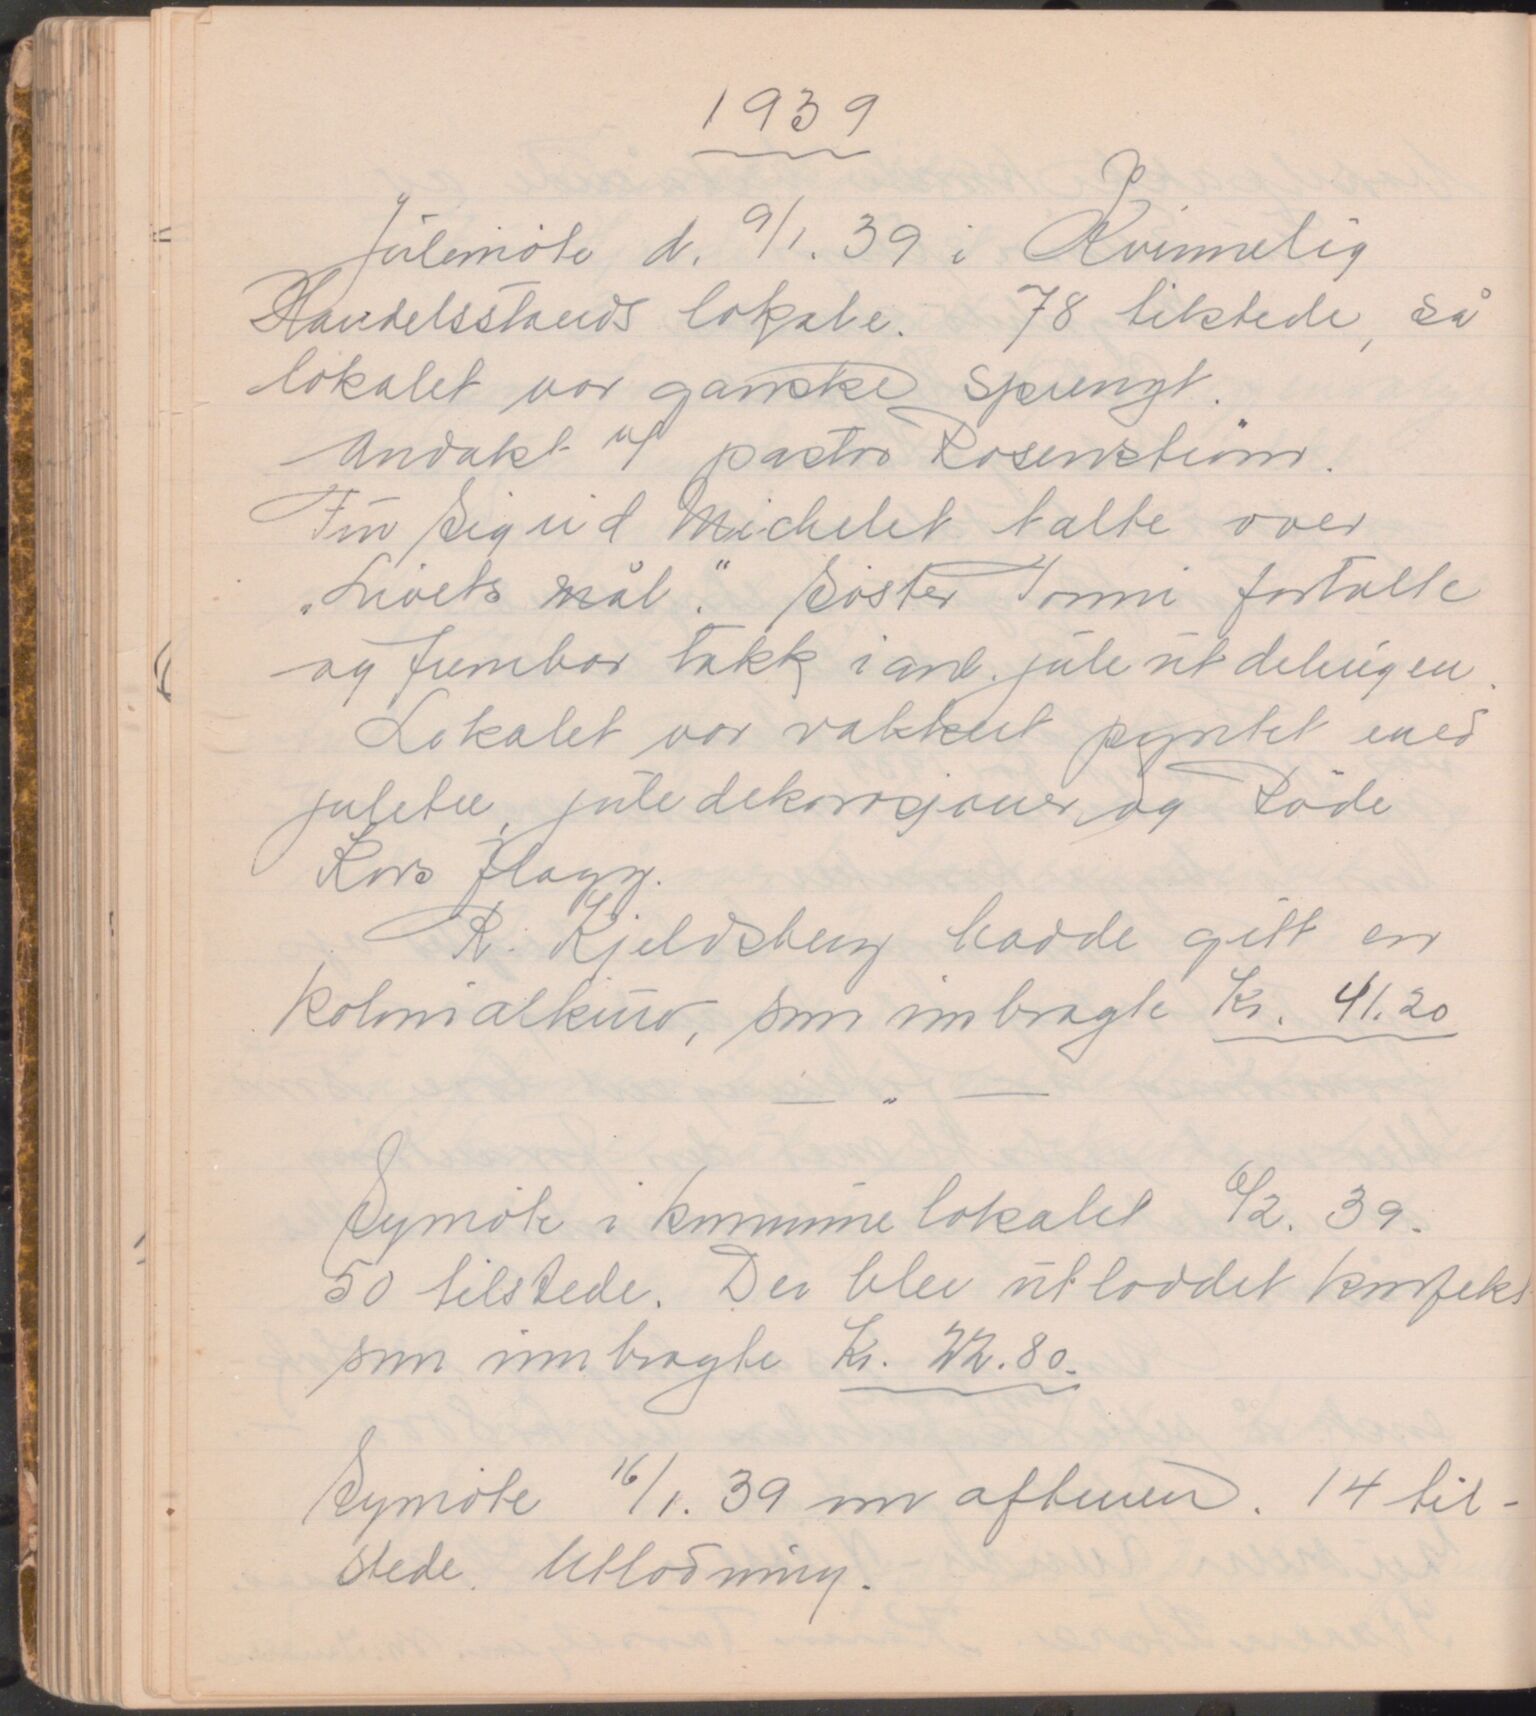 1939
Julemöte d. 9/1. 39 i Kvinnelig
Handelsstands lokale. 78 tilstede, så
lokalet var ganske sprengt.
Andakt v/ pastor Rosenström.
Fru Sigrid Michelet talte over
"Livets mål." Söster Tonni fortalte
og frembar takk i anl. juleutdelingen.
Lokalet var vakkert pyntet med
juletre, juledekorasjoner og Röde
Kors flagg.
R. Kjeldsberg hadde gitt en
kolonialkurv, som innbragte Kr. 41.20
— " —
Symöte i kommunelokalet 6/2. 39.
50 tilstede. Der blev utloddet konfekt
som innbragte Kr. 22.80.
Symöte 16/1. 39 om aftenen. 14 til-
stede. Utlodning.